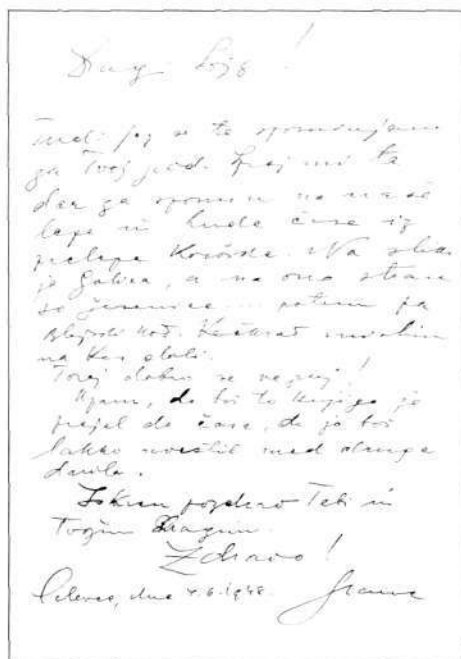 Dragi Lojz!
Tudi jaz se te spominjam
za Tvoj god. Naj mi ta
dar za spomin na naše
lepe in hude čase iz
prelepe Koroške. Na sliki
je Golica, a na ono stran
so Jesenice ... potem pa
Blejski kot. Večkrat mislim
na
Torej dobro se !
Upam, da boš to knjigo še
prejel do časa, da jo boš
lahko uvrstil med druga
darila.
Iskren pozdrav Tebi in
Tvojim dragim.
Zdravo!
Celovec, dne 4.6.1948. Franc